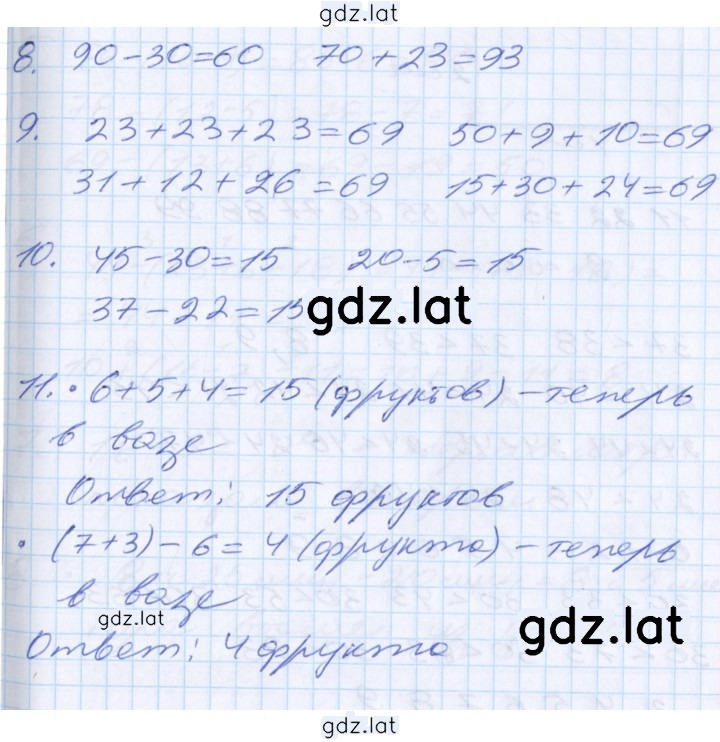 gdz.lat
8. 90-30=60 70+23=93
9. 23+23+23=69 50+9+10=69
31+12+26=69 15+30+24=69
10. 45-30=15 20-5=15
37-22=15
gdz.lat
11. • 6+5+4=15 (фруктов) - теперь
в вазе
Ответ: 15 фруктов
• (7+3)-6=4 (фрукта) - теперь
в вазе
gdz.lat
gdz.lat
Ответ: 4 фрукта
gdz.lat